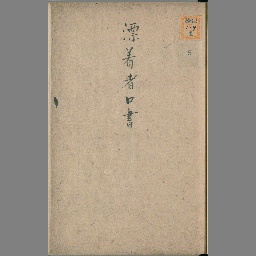 漂着者口書